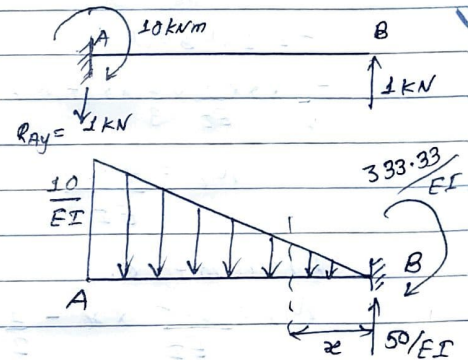 A 10 kNm B
1 KN
RAy = 1 KN
10/EI
333.33/EI
A B
x 50/EI